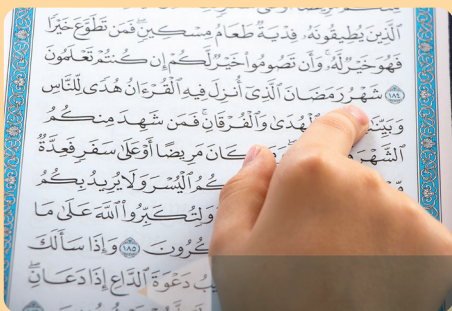 ٱلَّذِينَ يُطِيقُونَهُۥ فِدْيَةٌ طَعَامُ مِسْكِينٍ ۖ فَمَن تَطَوَّعَ خَيْرًا
فَهُوَ خَيْرٌ لَّهُۥ ۚ وَأَن تَصُومُوا۟ خَيْرٌ لَّكُمْ إِن كُنتُمْ تَعْلَمُونَ
١٨٤ شَهْرُ رَمَضَانَ ٱلَّذِىٓ أُنزِلَ فِيهِ ٱلْقُرْءَانُ هُدًى لِّلنَّاسِ
ٱلْهُدَىٰ وَٱلْفُرْقَانِ ۚ فَمَن شَهِدَ مِنكُمُ
ٱلشَّهْرَ كَانَ مَرِيضًا أَوْ عَلَىٰ سَفَرٍ فَعِدَّةٌ
ٱلْيُسْرَ وَلَا يُرِيدُ بِكُمُ
وَلِتُكَبِّرُوا۟ ٱللَّهَ عَلَىٰ مَا
١٨٥ وَإِذَا سَأَلَكَ
دَعْوَةَ ٱلدَّاعِ إِذَا دَعَانِ ۖ